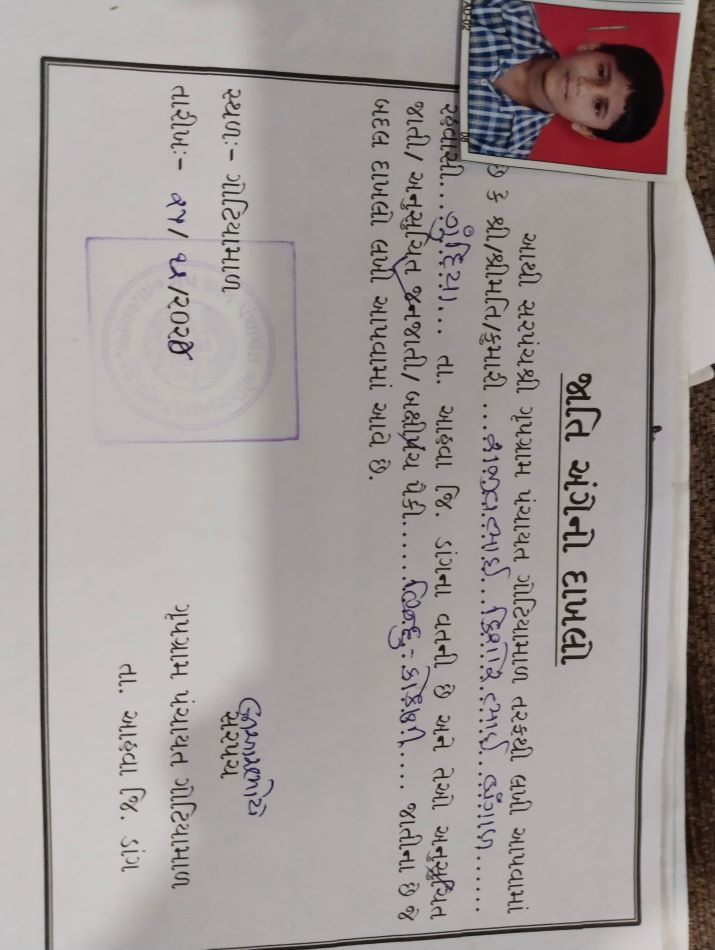 જાતિ અંગેનો દાખલો
આથી સરપંચશ્રી ગૃપગ્રામ પંચાયત ગોટિયામાળ તરફથી લખી આપવામાં
છે કે શ્રી/શ્રીમતિ/કુમારી ...
રહેવાસી.... તા. આહવા જિ. ડાંગના વતની છે અને તેઓ અનુસુચિત
જાતી/ અનુસુચિત જનજાતી/ બક્ષીપંચ પૈકી...... હિન્દુ - કોંકણી.... જાતીના છે જે
બદલ દાખલો લખી આપવામાં આવે છે.
સ્થળ:- ગોટિયામાળ
તારીખ:- ૨૫/ ૧૨/૨૦૨૪
સરપંચ
ગૃપગ્રામ પંચાયત ગોટિયામાળ
તા. આહવા જિ. ડાંગ